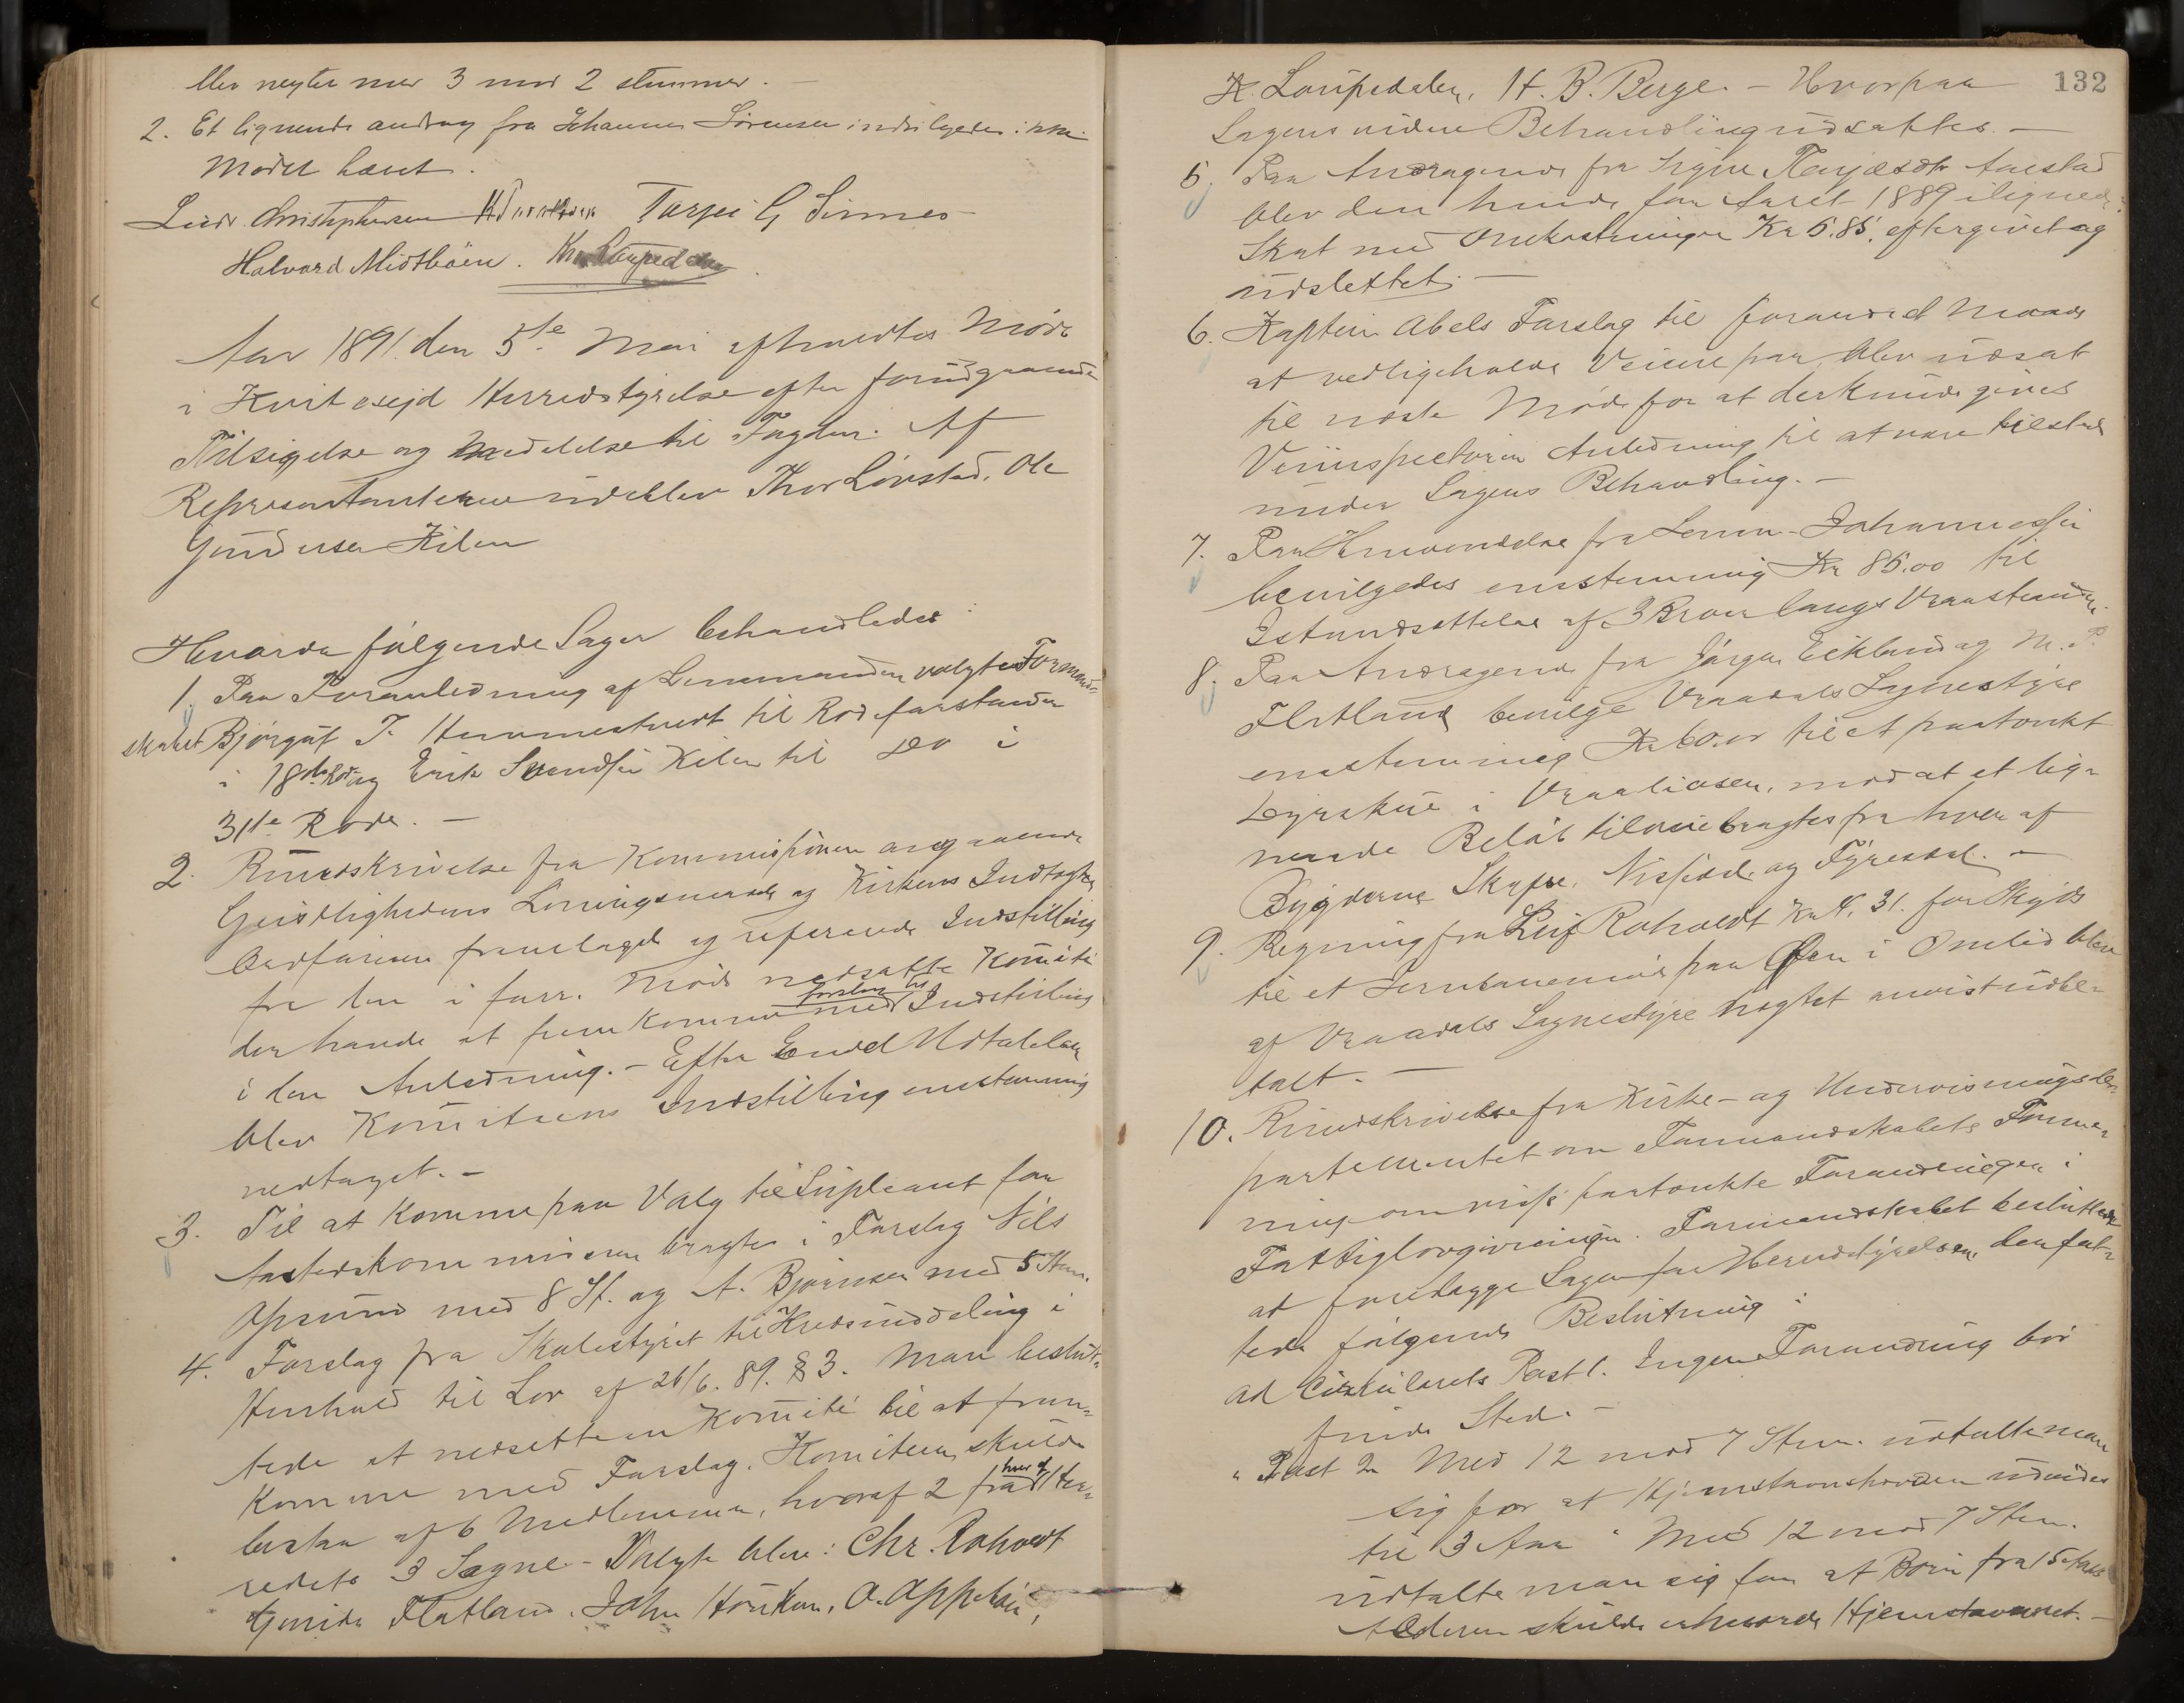 blev negtet med 3 mod 2 stemmer. —
2. Et lignende andrag fra Johannes Sörensen indvilgedes ikke.
Mødet hævet.
Ludv. Christophersen Tarjei G Sinnes
Halvord Midtböen. Kn. Laupedalen.
Aar 1891 den 5te Mai afholdtes Møde
i Kviteseid Herredstyrelse efter forudgaaende
Tilsigelse og Meddelelse til Fogden. Af
Repræsentanterne udeblev Thor Lövstad, Ole
Gundersen Kilen
Hvorda følgende Sager behandledes:
1. Paa Foranledning af Lensmanden valgte Formand-
skabet Björguf T. Hemmestveit til Rodeforstander
i 18de Rode og Erik Svendsen Kilen til do i
31te Rode. —
2. Rundskrivelse fra Kommissionen angaaende
Geistlighedens Lønningsmaade og Kirkens Indtægter
Ordføreren fremlagde og refererede Indstilling
fra den i forr. Møde nedsatte Komite
der havde at fremkomme med forslag til Indstilling
i den Anledning. — Efter Endel Udtalelser
blev Komiteens Indstilling enstemmig
vedtaget. —
3. Til at komme paa Valg til Supleant for
Aastedskommissionen bragtes i Forslag Nils
Opsund med 8 St. og A. Björnsen med 5 Stem.
4. Forslag fra Skolestyret til Kredsinddeling i
Henhold til Lov af 26/6. 89. § 3. Man beslut-
tede at nedsætte en Komite til at frem-
komme med Forslag. Komiteen skulde
bestaa af 6 Medlemmer, hvoraf 2 fra hver af Her-
redets 3 Sogne. — Valgte blev: Chr. Roholdt
Gunder Flatland. John Haukom, O. Appeböen,
132
K. Laupedalen, H. B. Berge. — Hvorpaa
Sagens videre Behandling udsattes. —
5. Paa Andragende fra Signe Tarjesdtr Aarstad
blev den hende for Aaret 1889 ilignede
Skat med Omkostninger Kr 5.85. eftergivet og
udslettet. —
6. Kaptein Abels Forslag til forandret Maade
at vedligeholde Veiene paa, blev udsat
til næste Møde for at der kunde gives
Veiinspectøren Anledning til at være tilstede
under Sagens Behandling. —
7. Paa Henvendelse fra Lensm. Johannessen
bevilgedes enstemmig Kr 85.00 til
Istandsættelse af 3 Broer langs Vraastranden.
8. Paa Andragende fra Jörgen Eikland og M. P.
Flatland bevilge Vraadals Sognestyre
enstemmig Kr 60.00 til et paatænkt
i Vraaliosen, mod at et lig-
nende Beløb tilveiebragtes fra hver af
Bygderne Skafse, Nissedal og Fyresdal. —
9. Regning fra Leif Roholdt Kr 4.31. for Skyds
til et Jernbanemøde paa Øen i Omlid blev
af Vraadals Sognestyre negtet anvist udbe-
talt. —
10. Rundskrivelse fra Kirke- og Undervisningsde-
partementet om Formandskabets Forme-
ning om visse paatænkte Forandringer i
Fattiglovgivningen. Formandskabet besluttede
at forelægge Sagen for Herredstyrelsen, der fat-
tede følgende Beslutning:
ad Cirkulærets Post 1. Ingen Forandring bør
finde Sted. —
" Post 2. Med 12 mod 7 Stem. udtalte man
sig for at Hjemstavnshævden udvides
til 3 Aar. Med 12 mod 7 Stem.
udtalte man sig for at Børn fra 15 Aars
Alderen skulde erhverve Hjemstavnsret. —